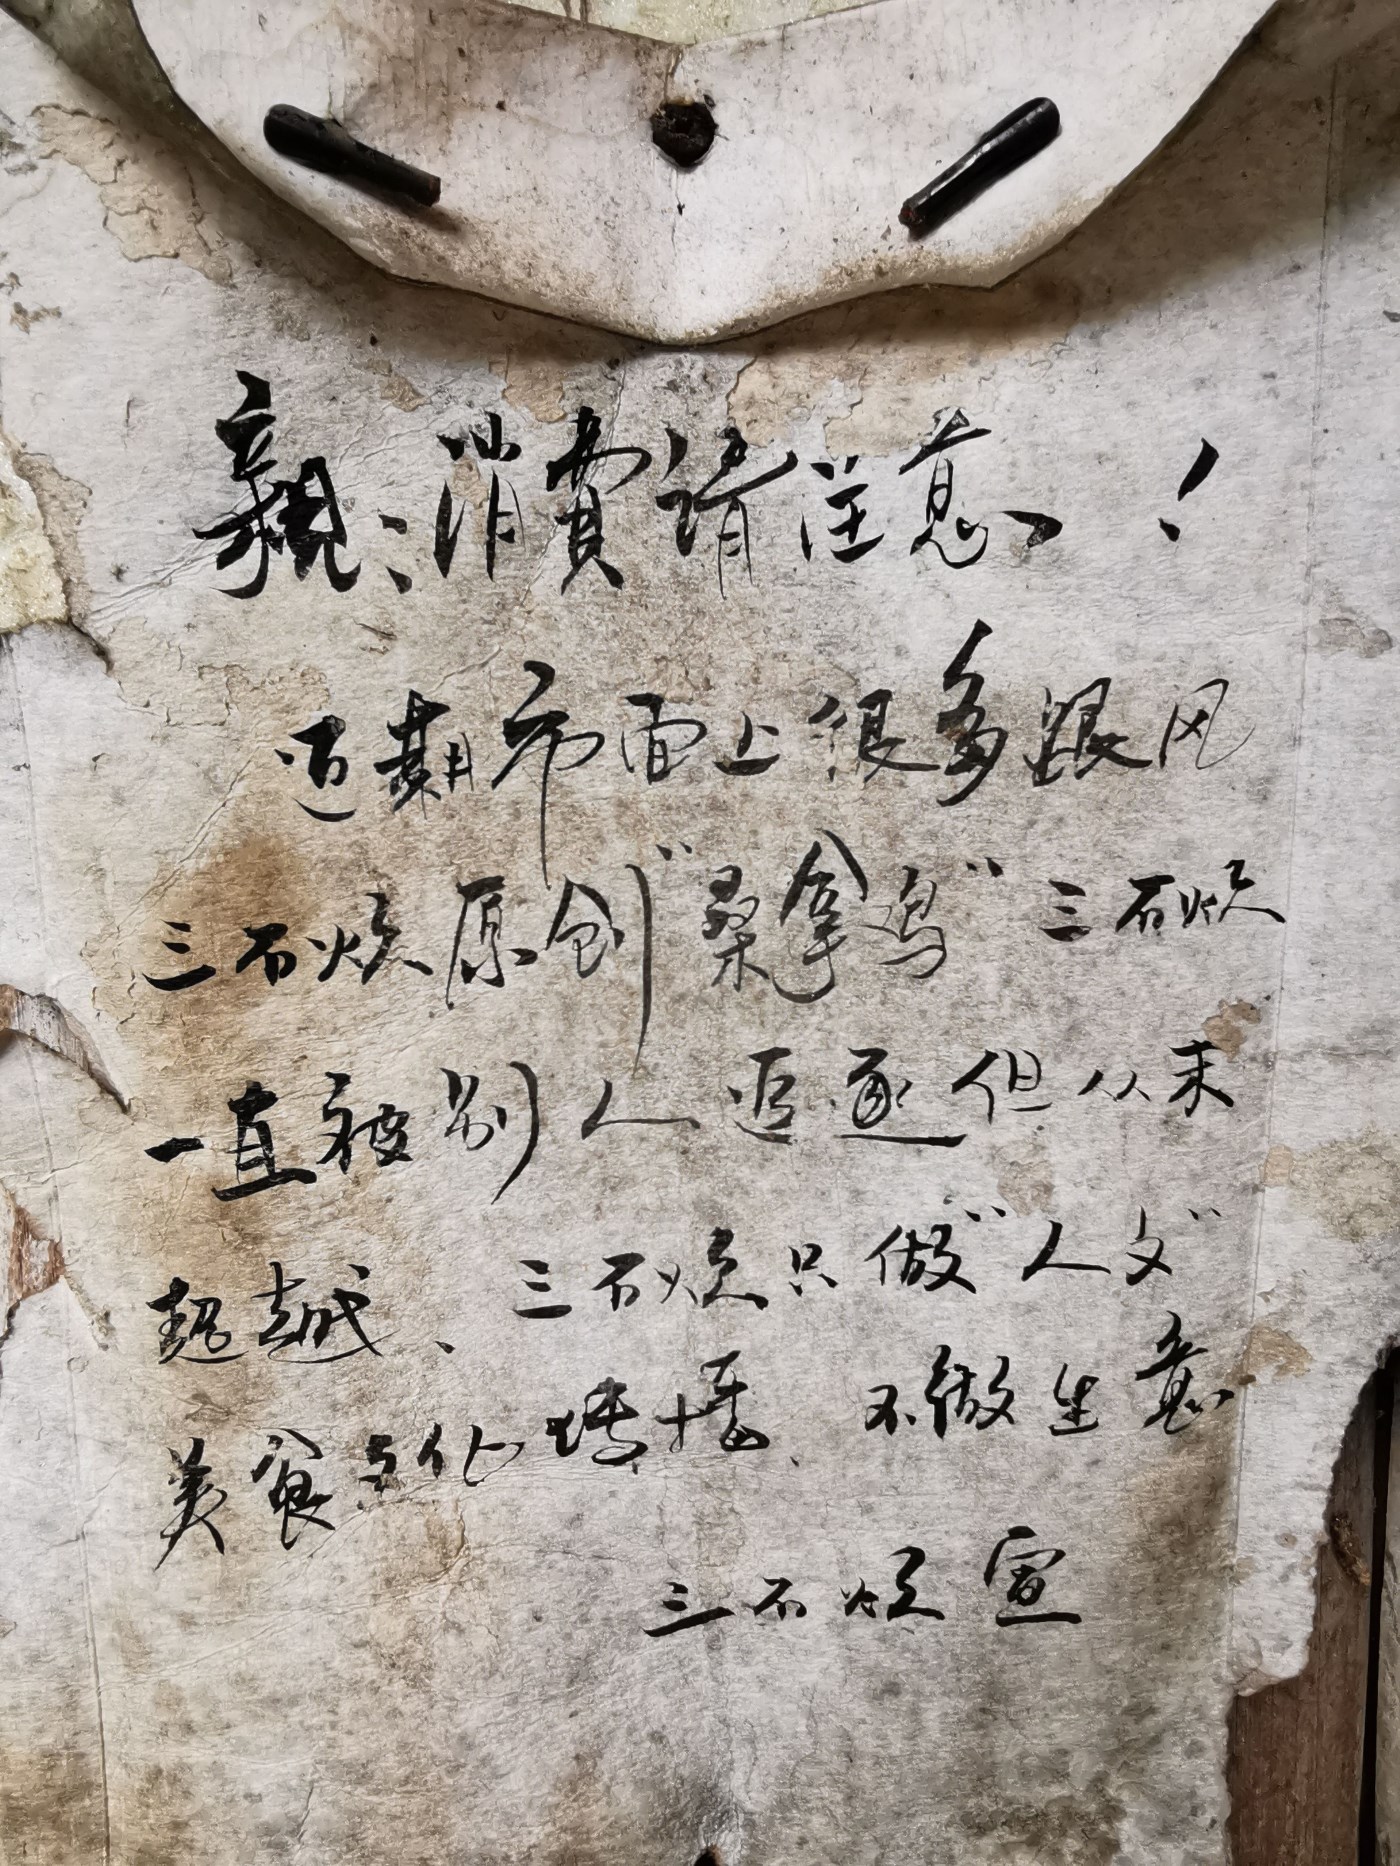 親：消費请注意！
近期市面上很多跟风
三不烧原创"桑拿鸡"三不烧
一直被别人追逐但从未
超越、三不烧只做"人文"
美食文化传播、不做生意
三不烧宣